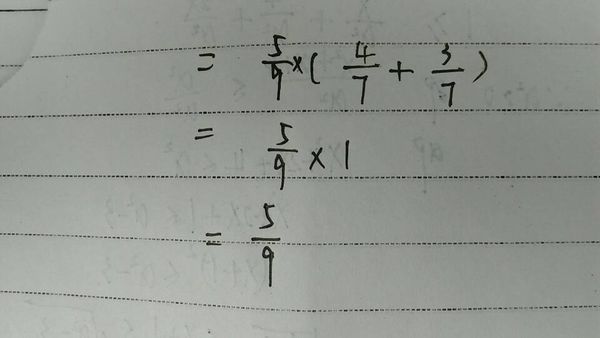 = 5/9 × ( 4/7 + 3/7 )
= 5/9 × 1
= 5/9